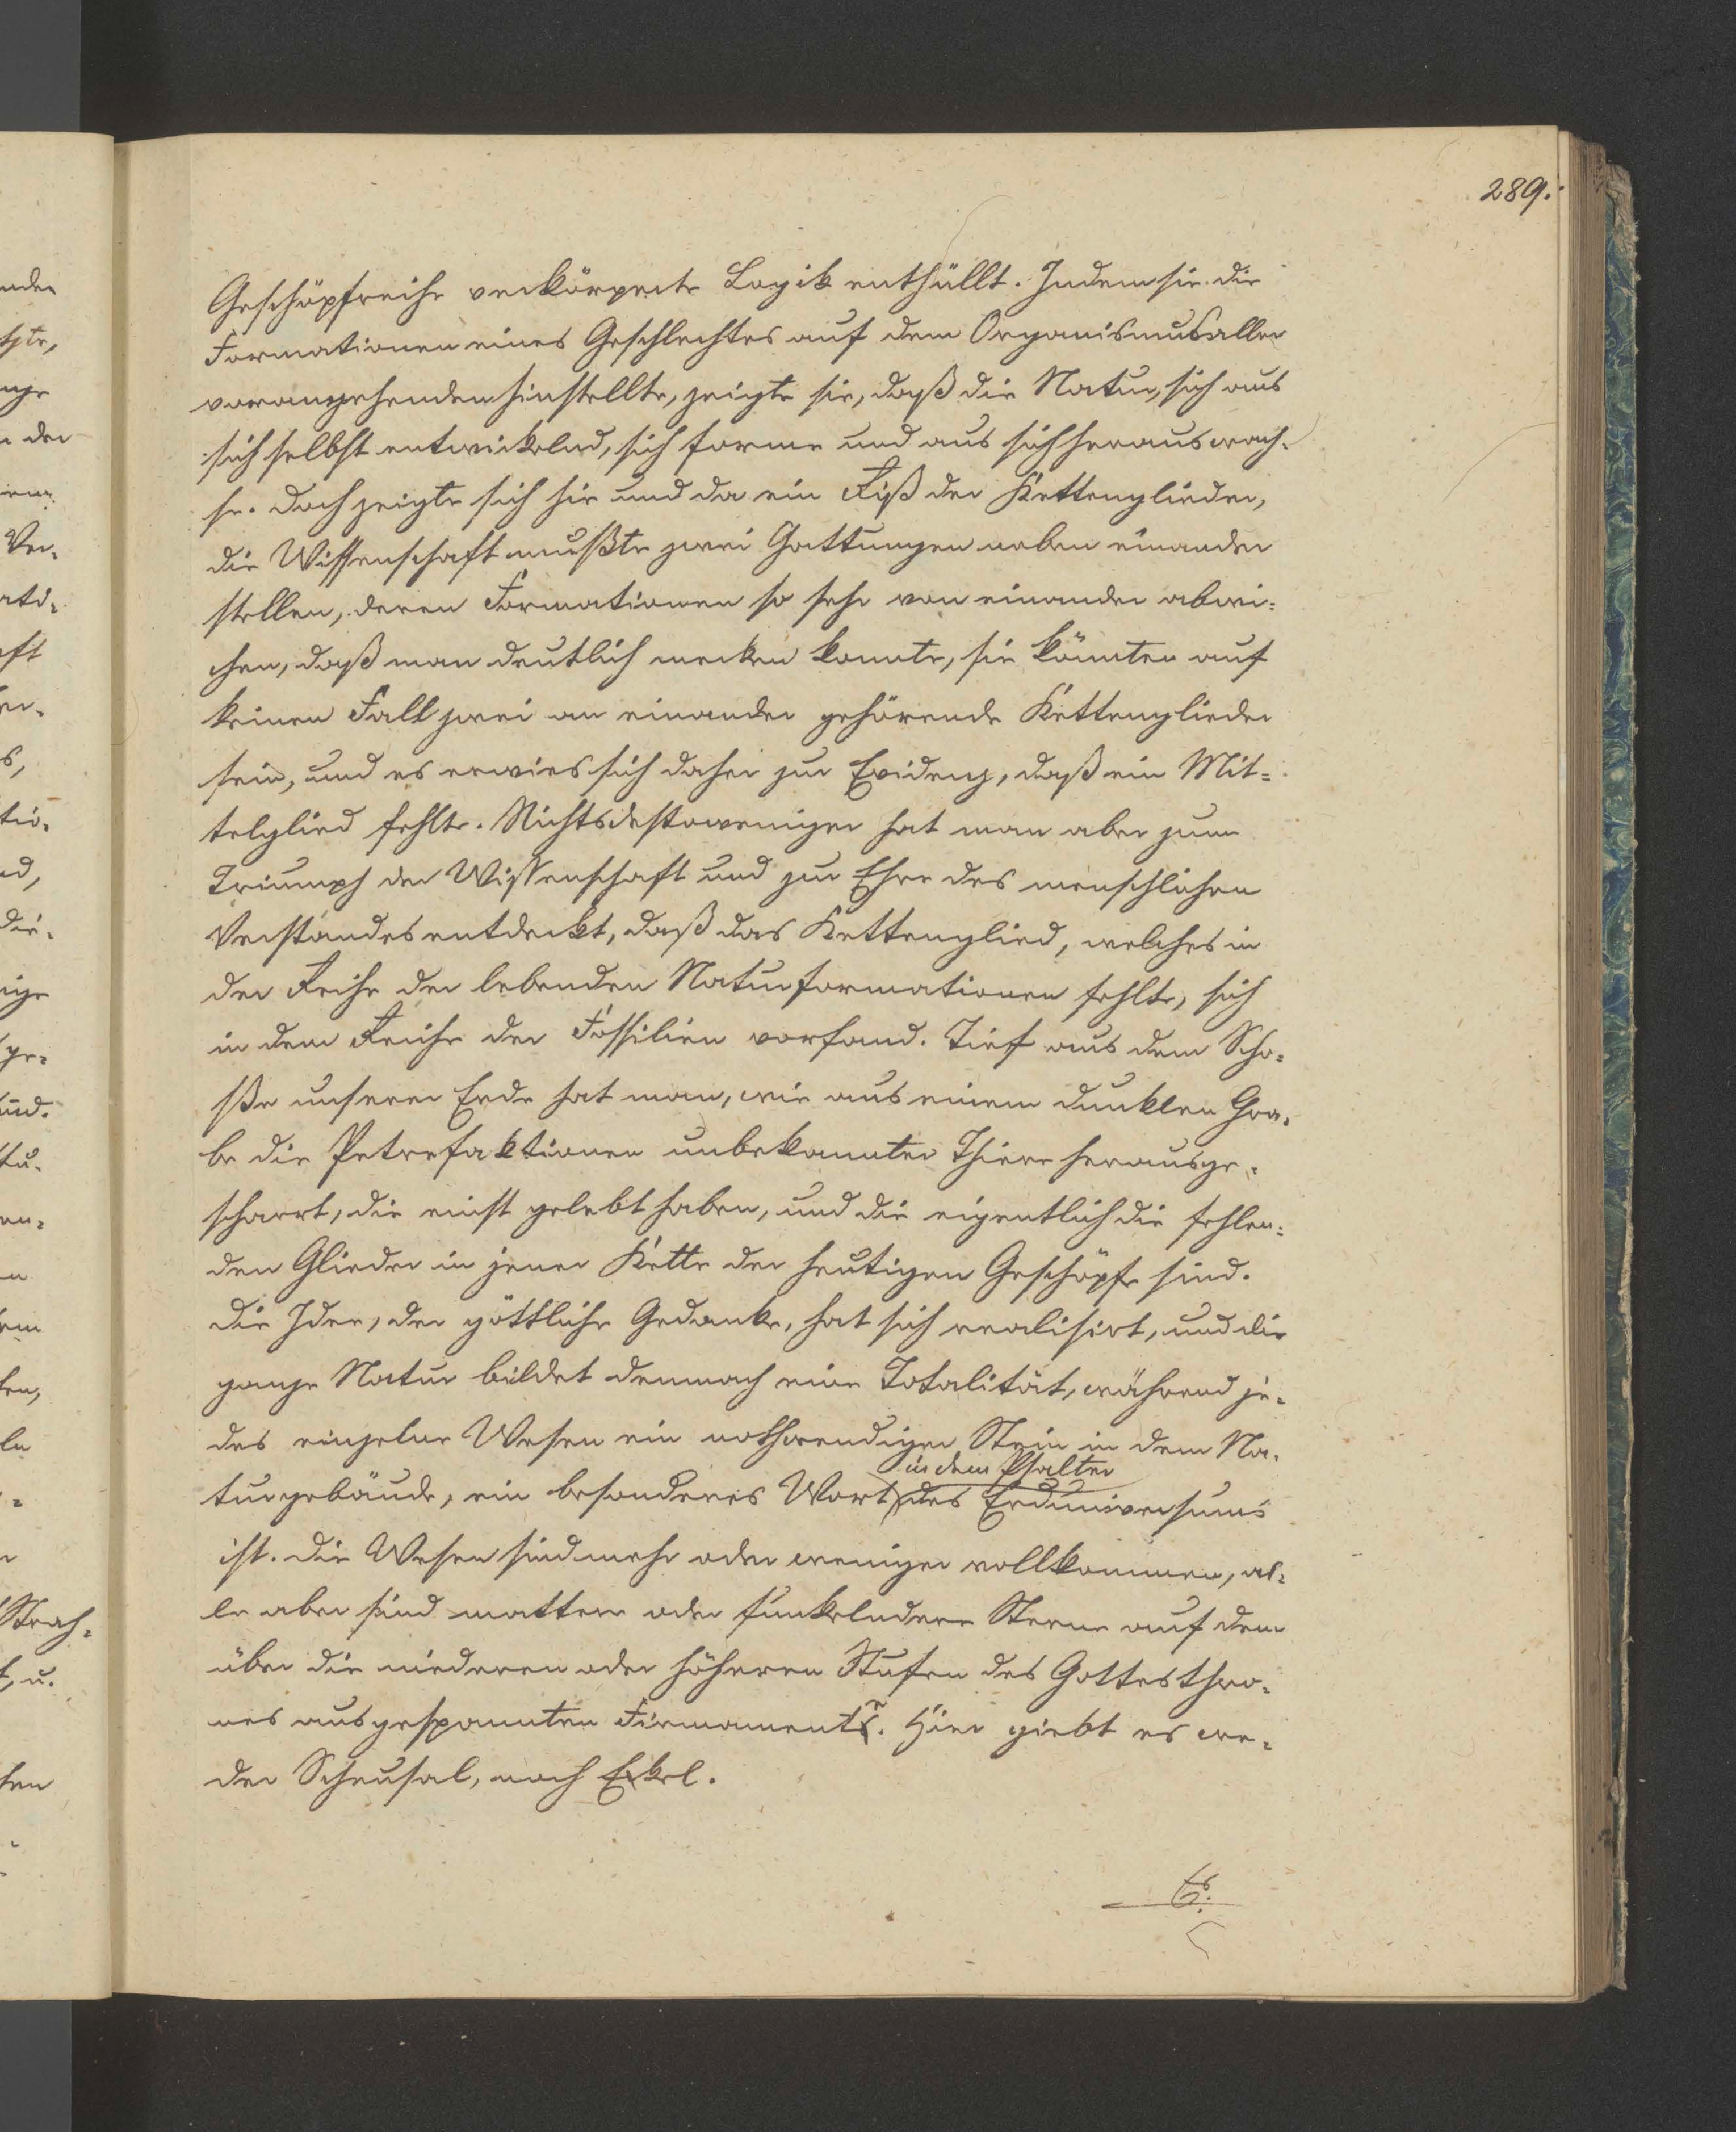 289.
Geschöpfreihe verkörperte Logik enthüllt. Indem sie die
Formationen eines Geschlechtes auf dem Organismus aller
vorangehenden hinstellte, zeigte sie, daß die Natur, sich aus
sich selbst entwickelnd, sich forme und aus sich herauswach-
se. Doch zeigte sich hie und da ein Riß der Kettenglieder,
die Wissenschaft mußte zwei Gattungen neben einander
stellen, deren Formationen so sehr von einander abwi-
chen, daß man deutlich merken konnte, sie könnten auf
keinen Fall zwei an einander gehörende Kettenglieder
sein, und es erwies sich daher zur Evidenz, daß ein Mit-
telglied fehlte. Nichtsdestoweniger hat man aber zum
Triumph der Wissenschaft und zur Ehre des menschlichen
Verstandes entdeckt, daß das Kettenglied, welches in
der Reihe der lebenden Naturformationen fehlte, sich
in dem Reiche der Fossilien vorfand. Tief aus dem Scho-
ße unserer Erde hat man, wie aus einem dunklen Gra-
be die Petrefaktionen unbekannter Thiere herausge-
scharrt, die einst gelebt haben, und die eigentlich die fehlen-
den Glieder in jener Kette der heutigen Geschöpfe sind.
Die Idee, der göttliche Gedanke, hat sich realisirt, und die
ganze Natur bildet demnach eine Totalität, während je-
des einzelne Wesen ein nothwendiger Stein in dem Na-
in dem Psalter
turgebäude, ein besonderes Wort des Erduniversums
ist. Die Wesen sind mehr oder weniger vollkommen, al-
le aber sind mattere oder funkelndere Sterne auf dem
über die niederen oder höheren Stufen des Gottesthro-
nes ausgespannten Firmamente. Hier giebt es we-
der Scheusal, noch Eckel.